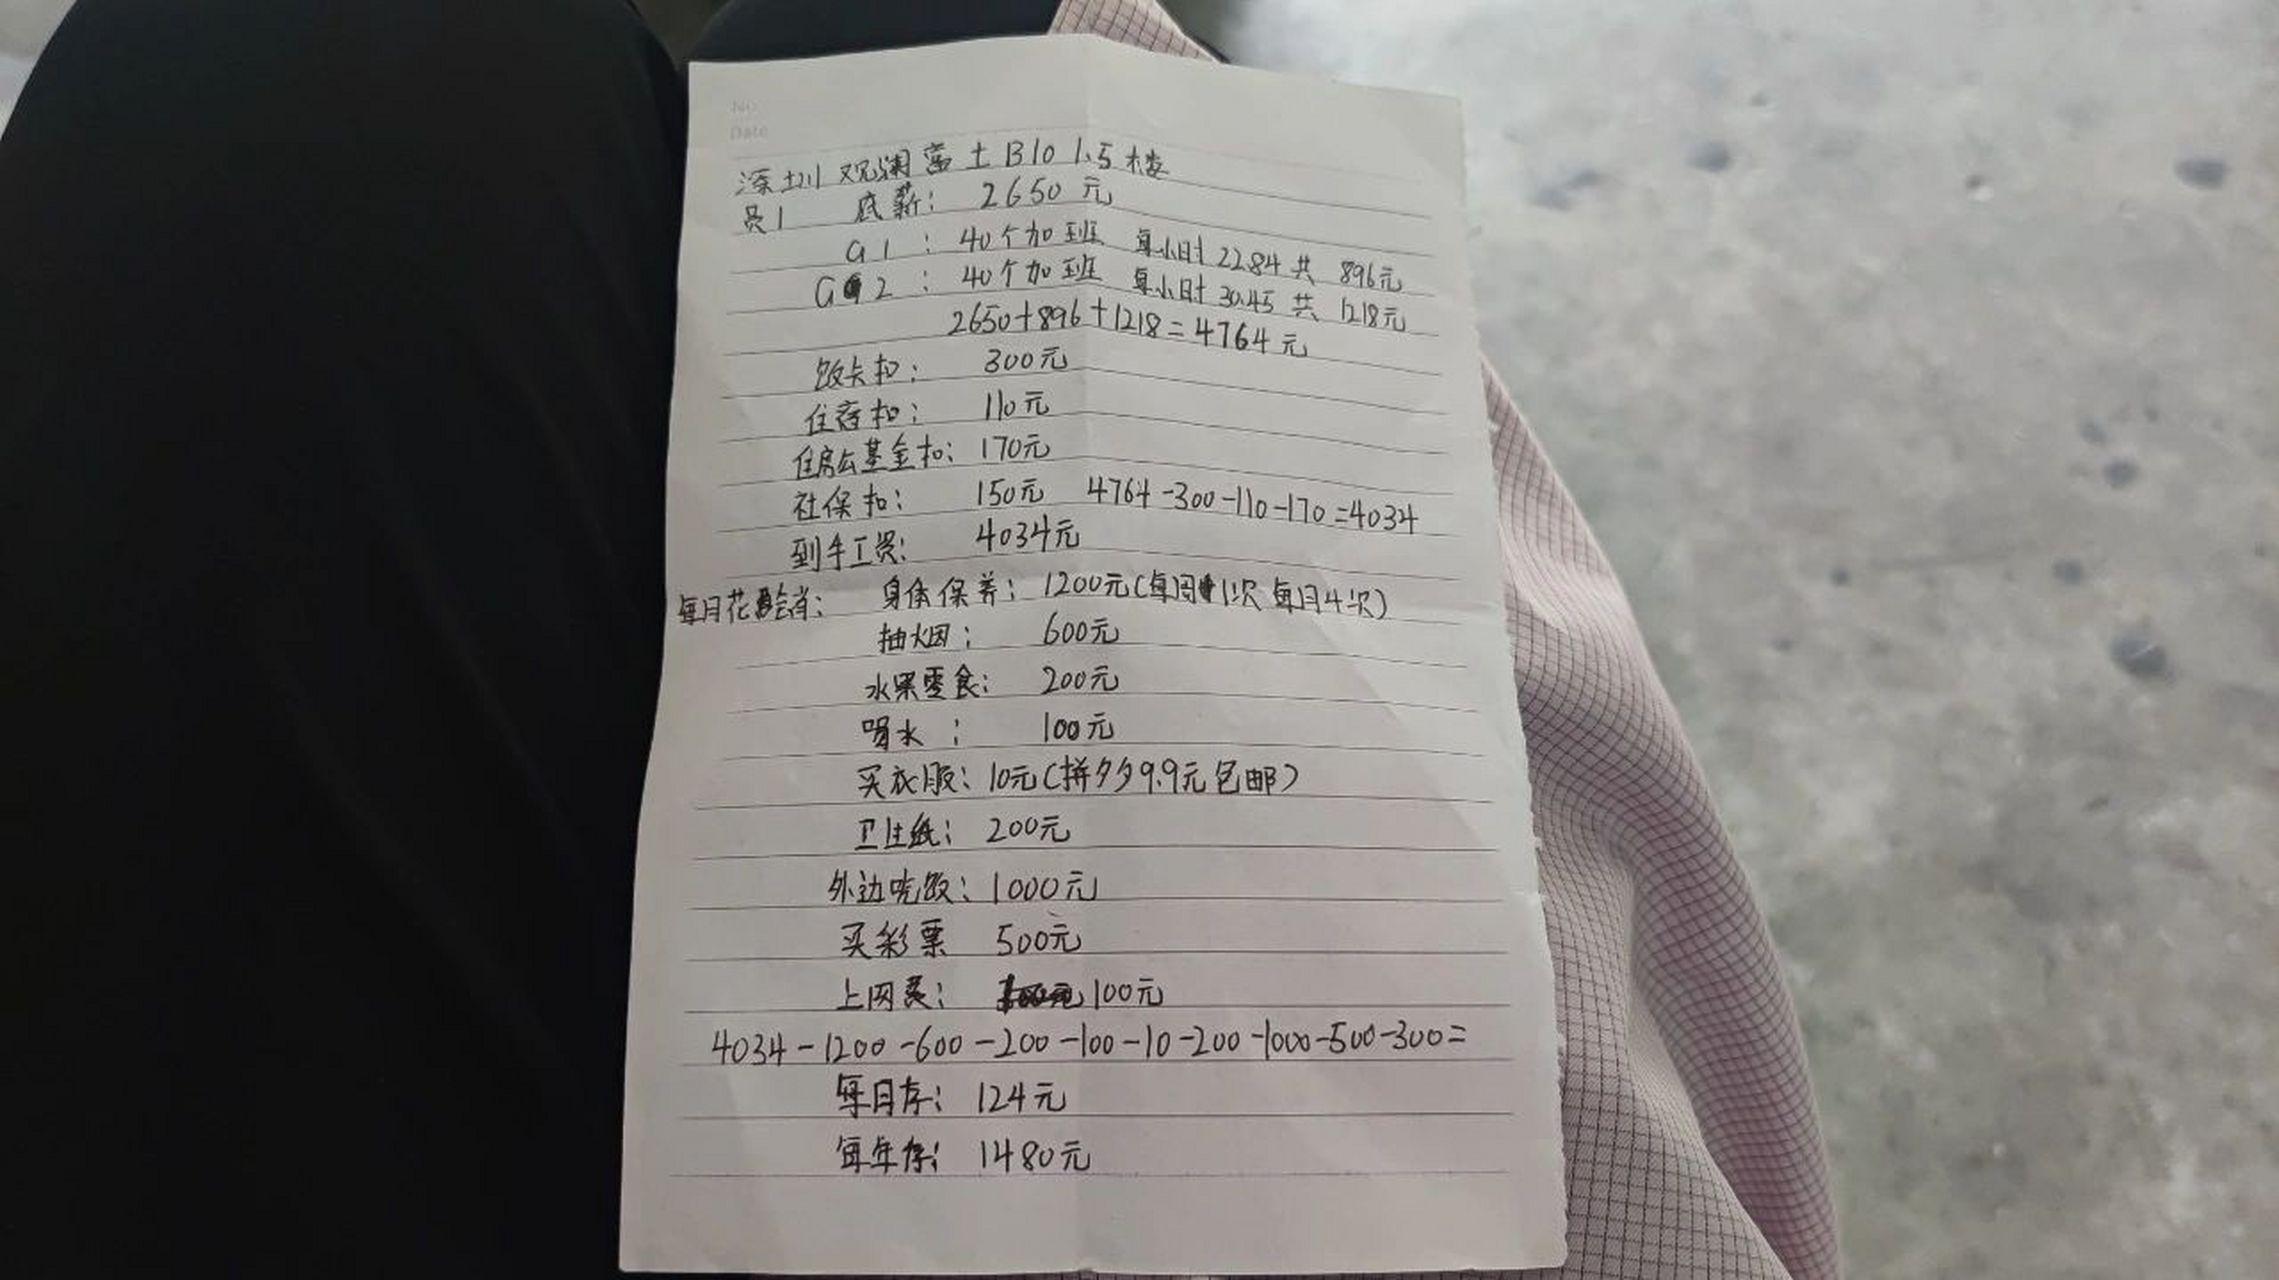 No
Date
深圳观澜富士B10 1.5楼
员1 底薪: 2650元
G1: 40个加班 每小时22.84共896元
G2: 40个加班 每小时30.45共1218元
2650+896+1218=4764元
饭卡扣: 300元
住宿扣: 110元
住房公基金扣: 170元
社保扣: 150元 4764-300-110-170=4034
到手工资: 4034元
每月花销: 身体保养: 1200元(每周1次 每月4次)
抽烟: 600元
水果零食: 200元
喝水: 100元
买衣服: 10元(拼多多9.9元包邮)
卫生纸: 200元
外边吃饭: 1000元
买彩票 500元
上网费: 100元
4034-1200-600-200-100-10-200-1000-500-300=
每月存: 124元
每年存: 1480元